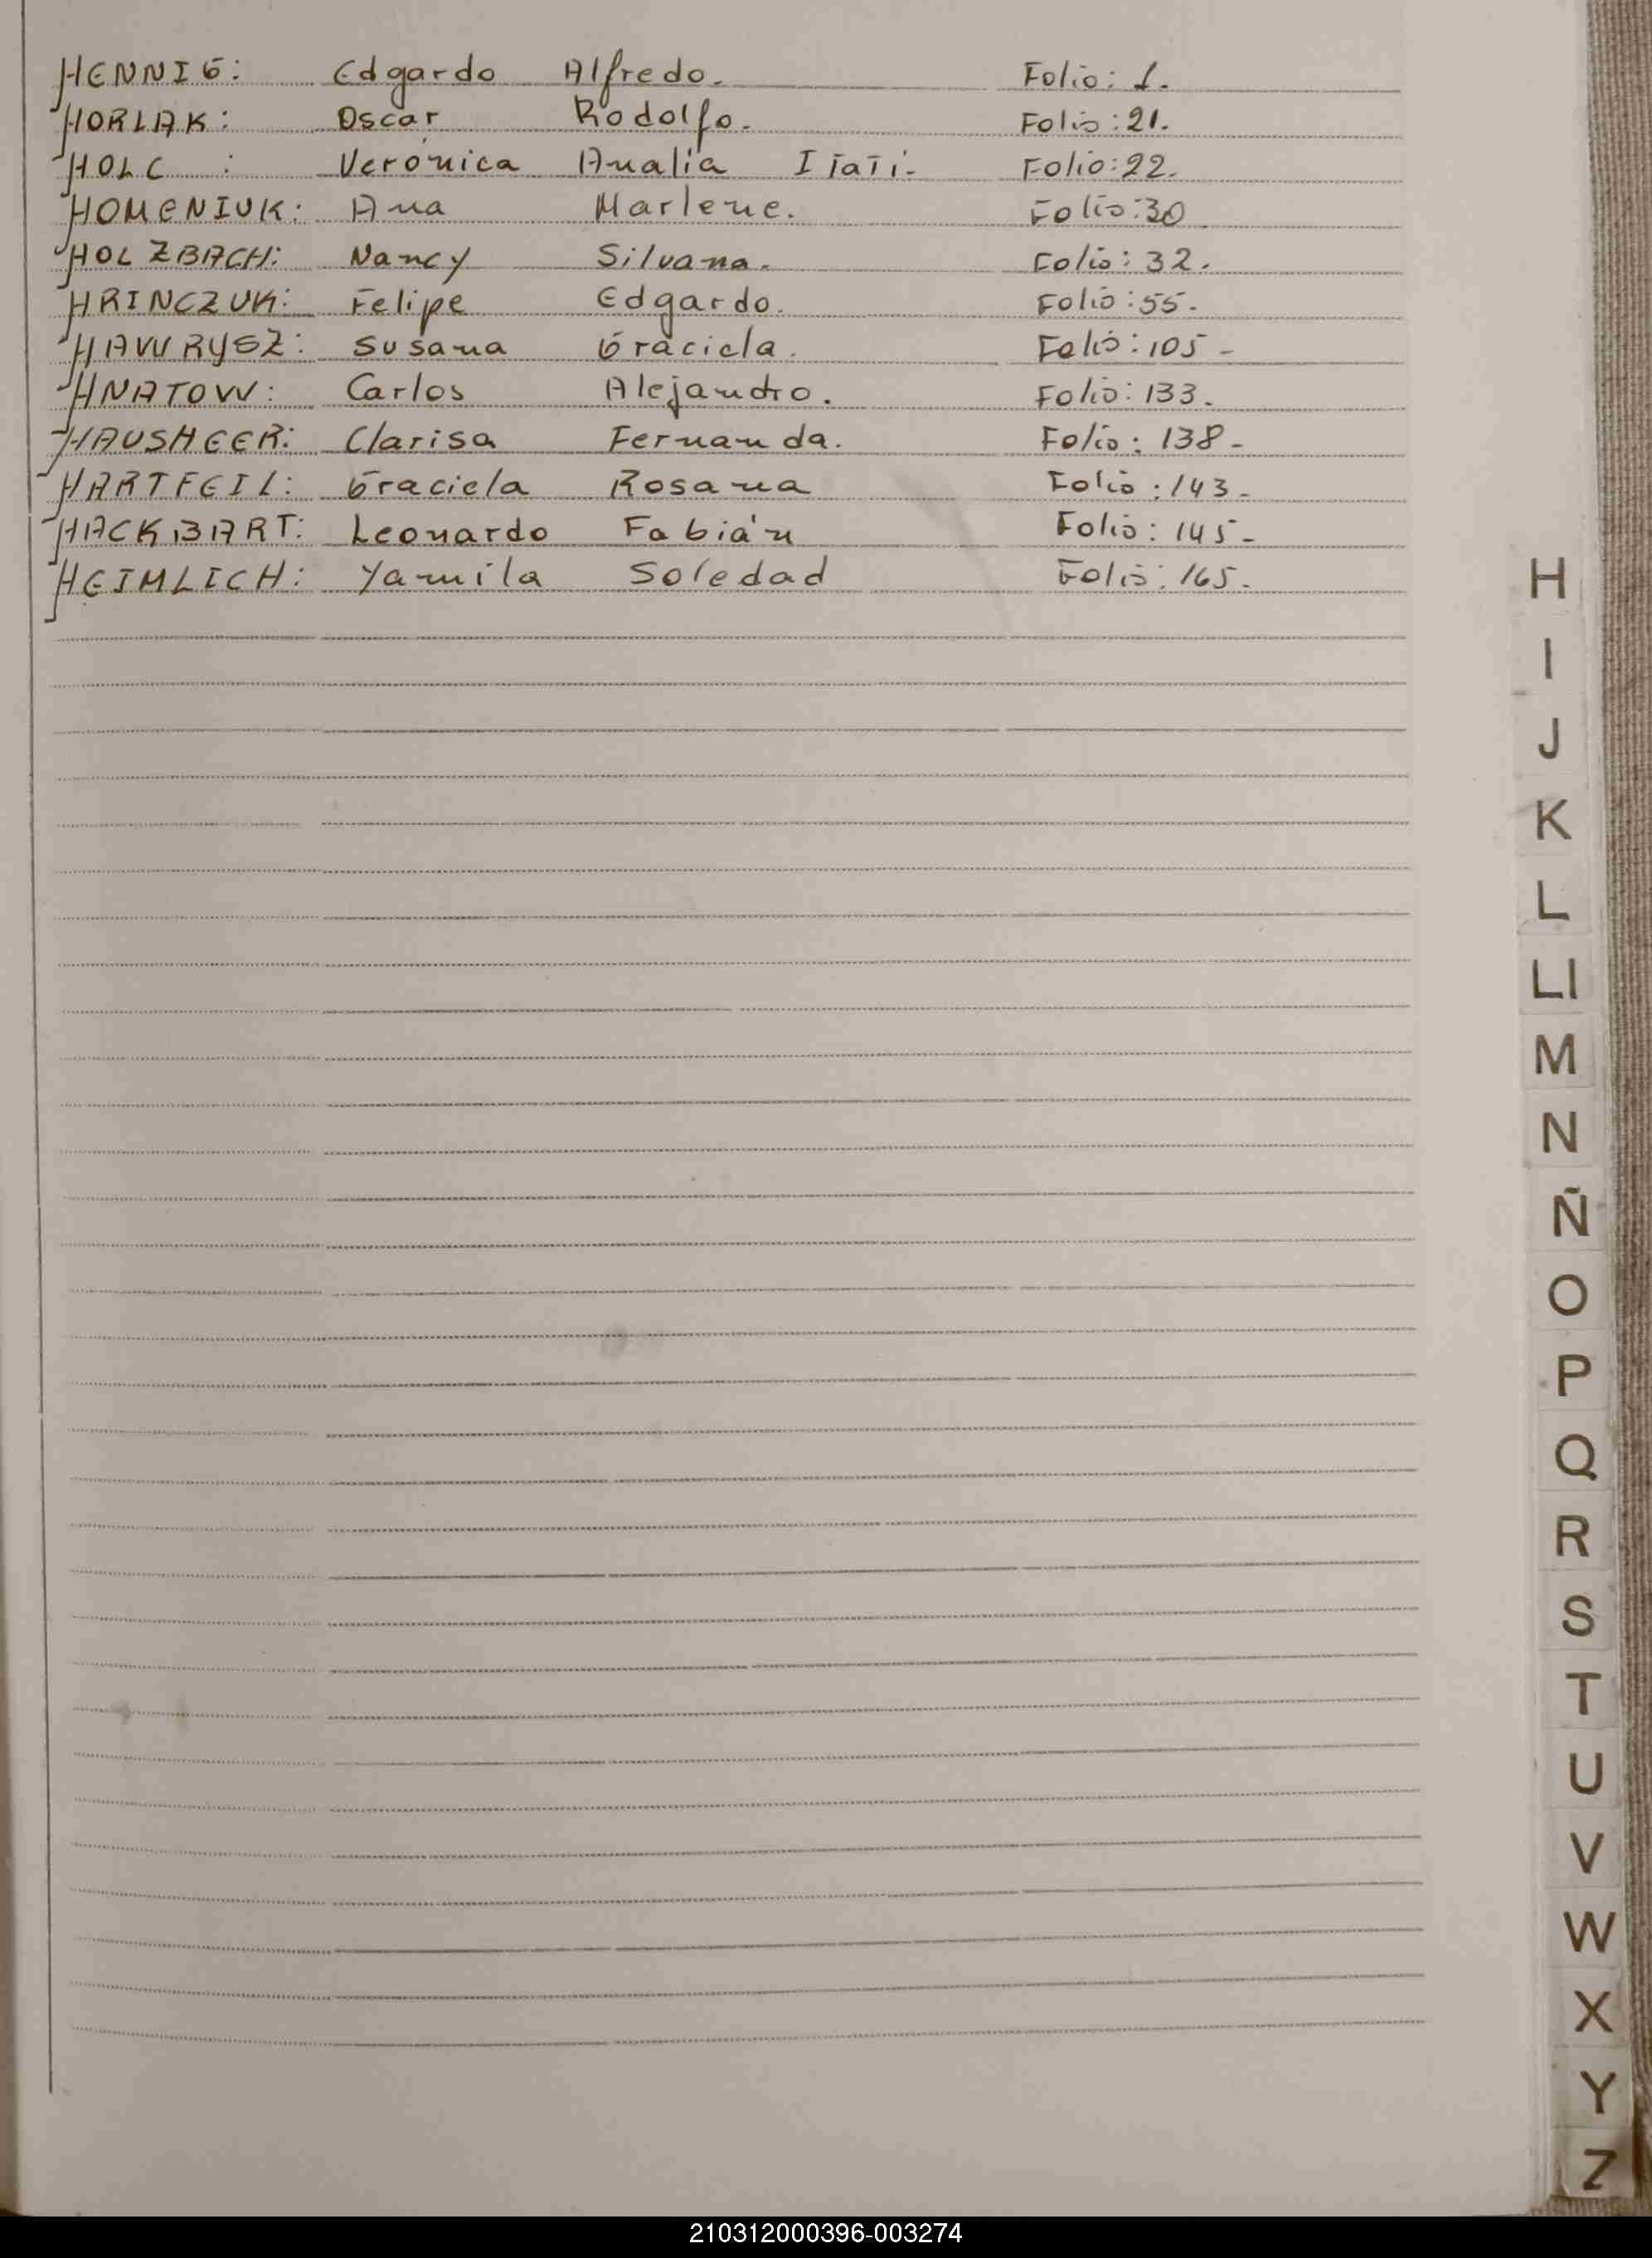 HENNIG: Edgardo Alfredo. Folio: 1.
HORLAK: Oscar Rodolfo. Folio: 21.
HOLC : Verónica Analía Itatí. Folio: 22.
HOMENIUK: Ana Marlene. Folio: 30
HOLZBACH: Nancy Silvana. Folio: 32.
HRINCZUK: Felipe Edgardo. Folio: 55.
HAWRYSZ: Susana Graciela. Folio: 105-
HNATOW: Carlos Alejandro. Folio: 133.
HAUSHEER: Clarisa Fernanda. Folio: 138-
HARTFEIL: Graciela Rosana Folio: 143-
HACKBART: Leonardo Fabián Folio: 145-
HEIMLICH: Yamila Soledad Folio: 165-
H
I
J
K
L
Ll
M
N
Ñ
O
P
Q
R
S
T
U
V
W
X
Y
Z
210312000396-003274